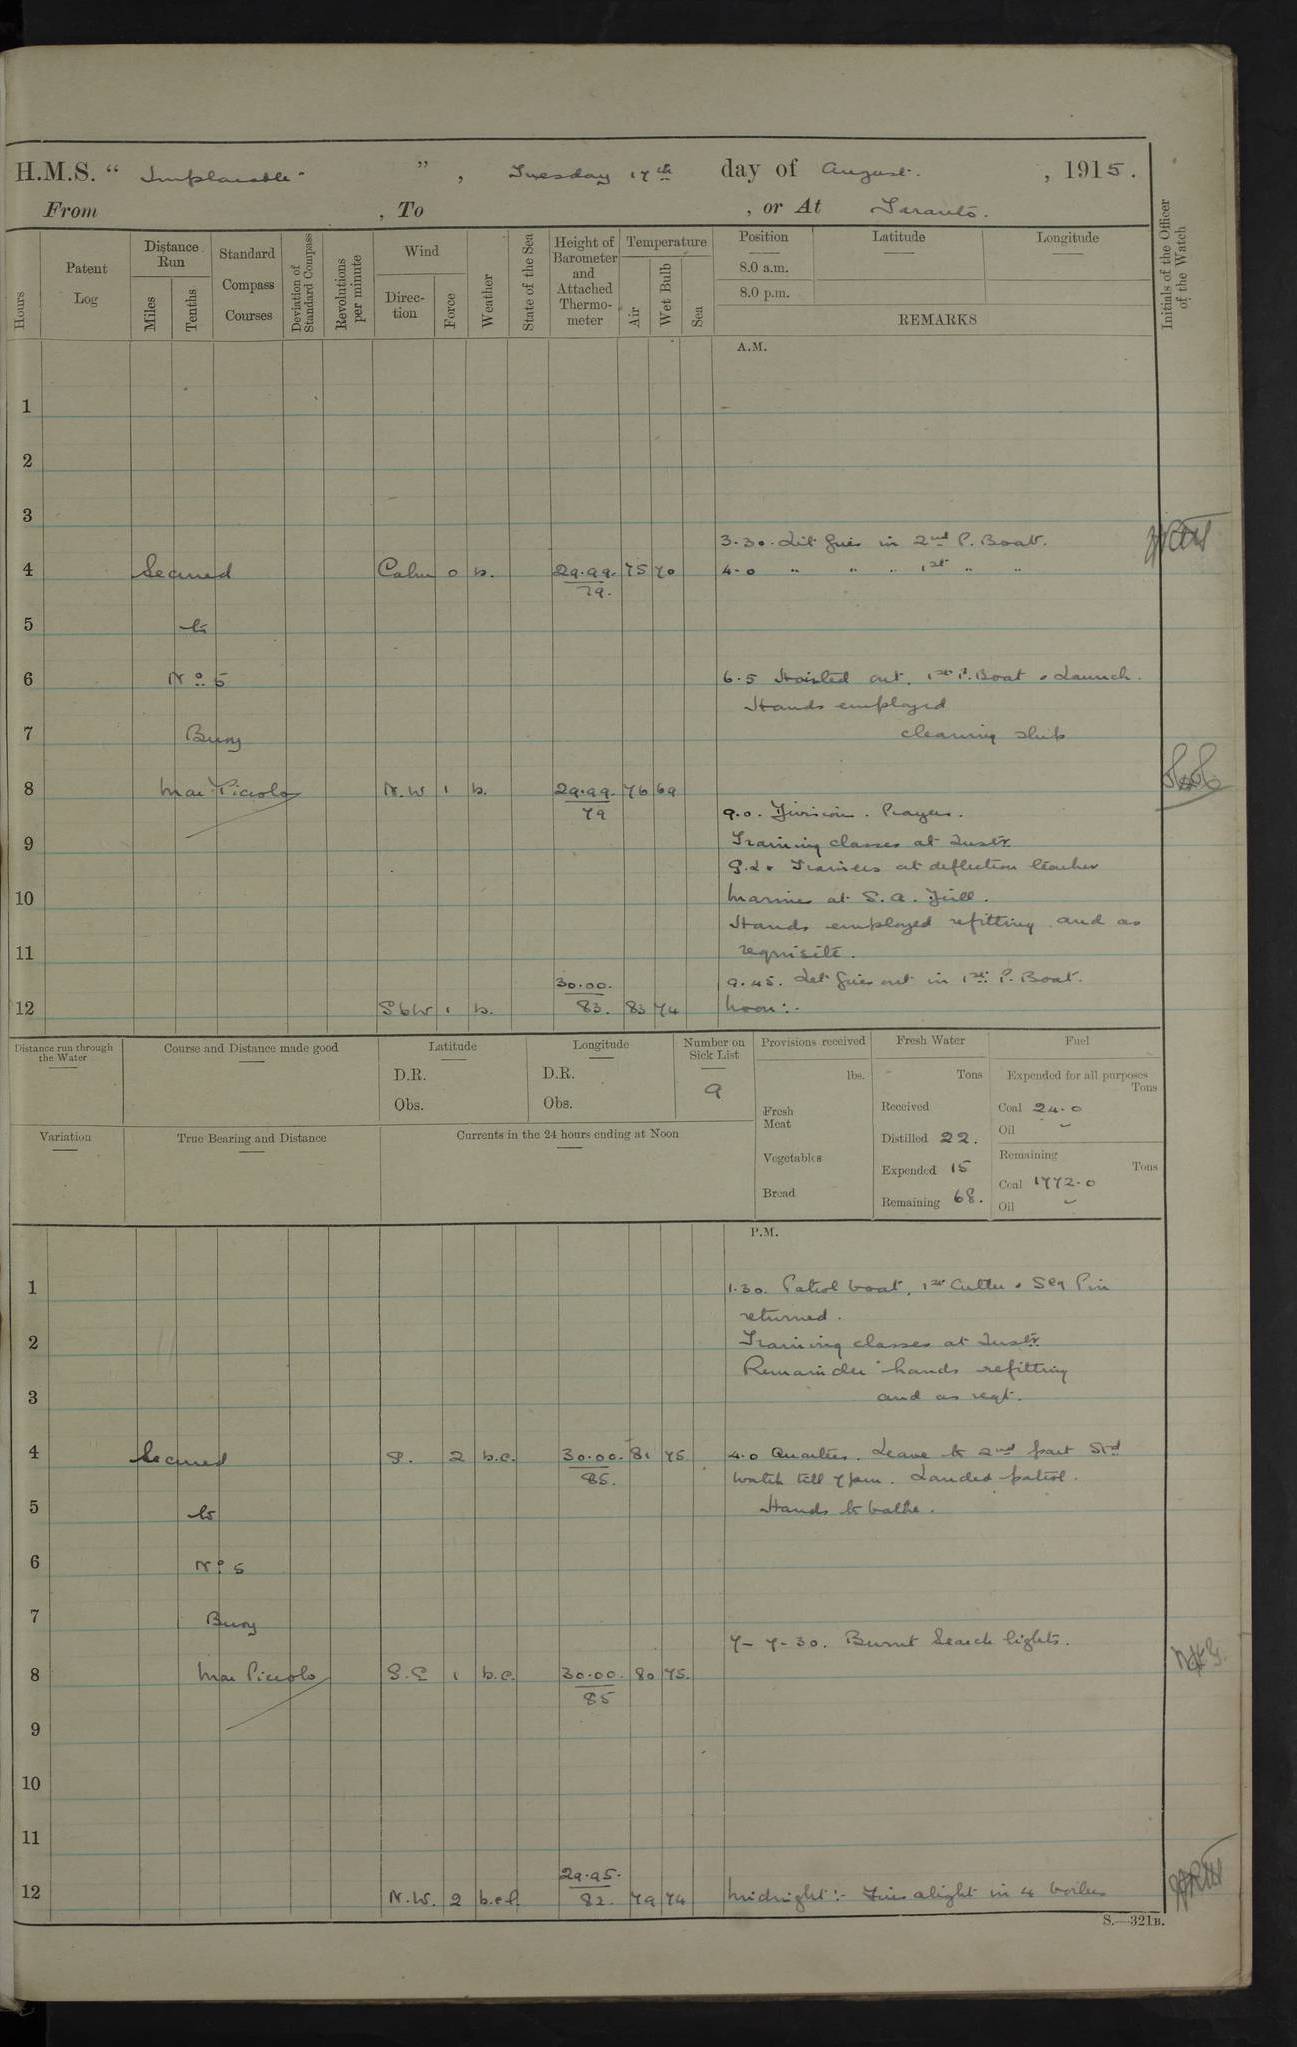 H.M.S. " Implacable " , Tuesday 17th day of August. , 1915.
From , To , or At Taranto.
Hours
Patent Log
Distance Run
Miles
Tenths
Standard Compass Courses
Deviation of Standard Compass
Revolutions per minute
Wind
Direction
Force
Weather
State of the Sea
Height of Barometer and Attached Thermometer
Temperature
Air
Wet Bulb
Sea
Position
8.0 a.m.
8.0 p.m.
Latitude
Longitude
REMARKS
Initials of the Officer of the Watch
A.M.
1
2
3
3.30. Lit fires in 2nd P. Boat.
4 Secured Calm 0 b. 29.99. 75 70 4.0 " " " 1st " "
79.
5 to
6 No. 5 6.5 Hoisted out. 1st P. Boat & Launch.
Hands employed
7 Buoy cleaning ship
8 Mar Piccolo N.W 1 b. 29.99. 76 69
79
9.0. Divisions. Prayers.
9 Training classes at Instr.
G.L. Trainers at deflection teacher
10 Marines at S.A. Drill.
Hands employed refitting and as
11 requisite.
30.00. 9.45. Let fires out in 1st P. Boat.
12 SbW 1 b. 83. 83 74 Noon:-
Distance run through the Water
Course and Distance made good
Latitude
D.R.
Obs.
Longitude
D.R.
Obs.
Number on Sick List
9
Provisions received
lbs.
Fresh Meat
Vegetables
Bread
Fresh Water
Tons
Received
Distilled 22.
Expended 15
Remaining 68.
Fuel
Expended for all purposes
Tons
Coal 24.0
Oil -
Remaining
Tons
Coal 1772.0
Oil -
Variation
True Bearing and Distance
Currents in the 24 hours ending at Noon
P.M.
1 1.30. Patrol boat, 1st Cutter & Sea Pin
returned.
2 Training classes at Instr.
Remainder hands refitting
3 and as reqt.
4 Secured S. 2 b.c. 30.00. 81 75 4.0 Quarters. Leave to 2nd part Std
85. Watch till 7pm. Landed patrol.
5 to Hands to bathe.
6 No. 5
7 Buoy
7-7-30. Burnt Search lights.
8 Mar Piccolo S.E 1 b.c. 30.00. 80 75.
85
9
10
11
29.95.
12 N.W. 2 b.c.l. 82. 79 74 Midnight:- Fires alight in 4 boilers
S.—321B.